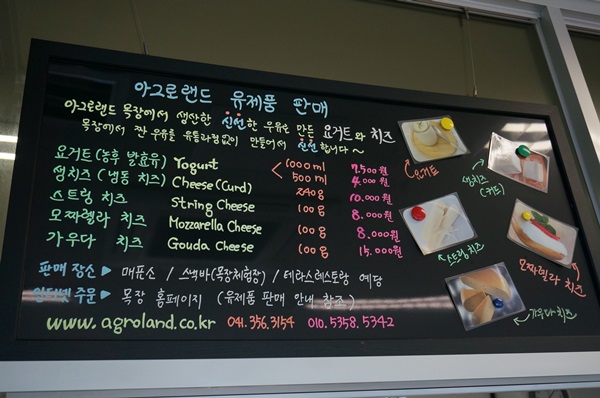 아그로랜드 유제품 판매
아그로랜드 목장에서 생산한 신선한 우유로 만든 요거트와 치즈
목장에서 짠 우유를 유통과정없이 만들어서 신선합니다~
요거트(농후 발효유) Yogurt 1000ml 7.500원
500ml 4.000원
생치즈 (냉동 치즈) Cheese(Curd) 240g 10.000원
스트링 치즈 String Cheese 100g 8.000원
모짜렐라 치즈 Mozzarella Cheese 100g 8.000원
가우다 치즈 Gouda Cheese 100g 15.000원
판매 장소 ▶ 매표소 / 스넥바(목장체험장) / 테라스레스토랑 예당
인터넷 주문 ▶ 목장 홈페이지 (유제품 판매 안내 참조)
www.agroland.co.kr 041.356.3154 010.5358.5342
요거트
생치즈
(커드)
스트링 치즈
모짜렐라 치즈
가우다 치즈